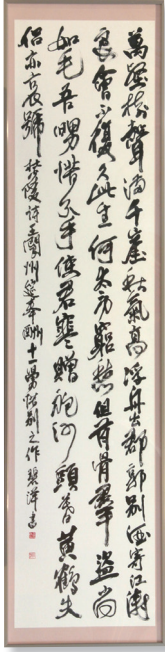 萬壑樹聲滿千崖秋氣高浮舟出郡郭別酒寄江濤
良會不復久此生何太勞窮愁但有骨群盜尚
如毛吾舅惜分手使君寒贈袍沙頭暮黃鶴失
侶亦哀號 杜陵詩王閬州筵奉酬十一舅惜別之作 碧澤書